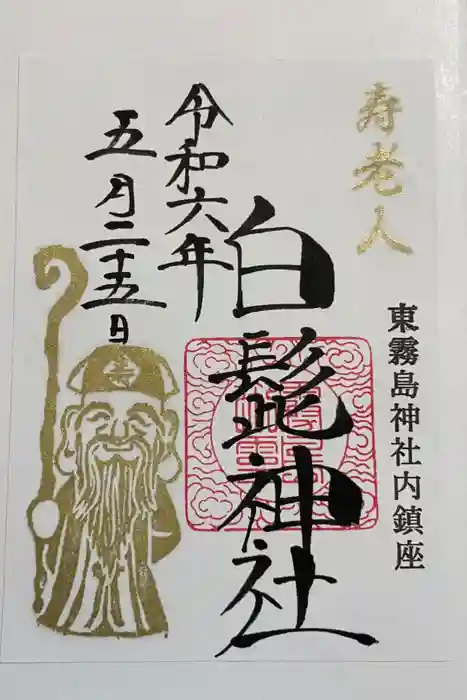 寿老人
東霧島神社内鎮座
白髭神社
令和六年
五月二十五日
寺